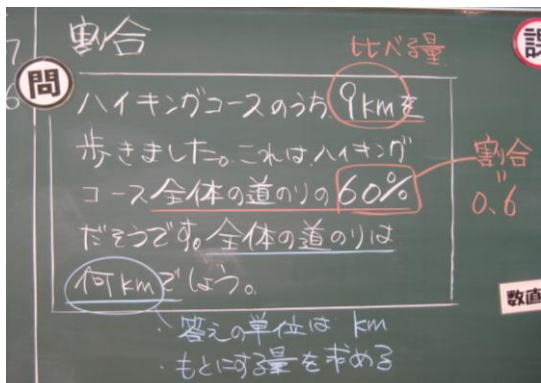 割合
比べる量
問
ハイキングコースのうち、9kmを
歩きました。これは、ハイキング
コース全体の道のりの60%
だそうです。全体の道のりは
何kmでしょう。
割合
=
0.6
・答えの単位は km
・もとにする量を求める
誤
数直
7
6